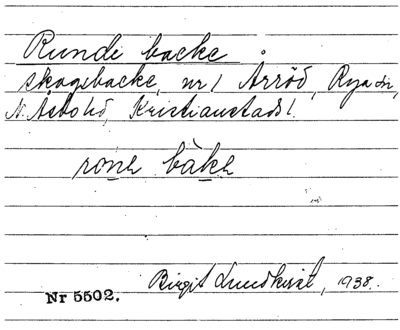 Runde backe
skogsbacke, nr 1 Årröd, Rya sn,
N. Åsbo hd, Kristianstads l.
rone bàke
Birgit Lundkvist, 1938.
Nr 5502.